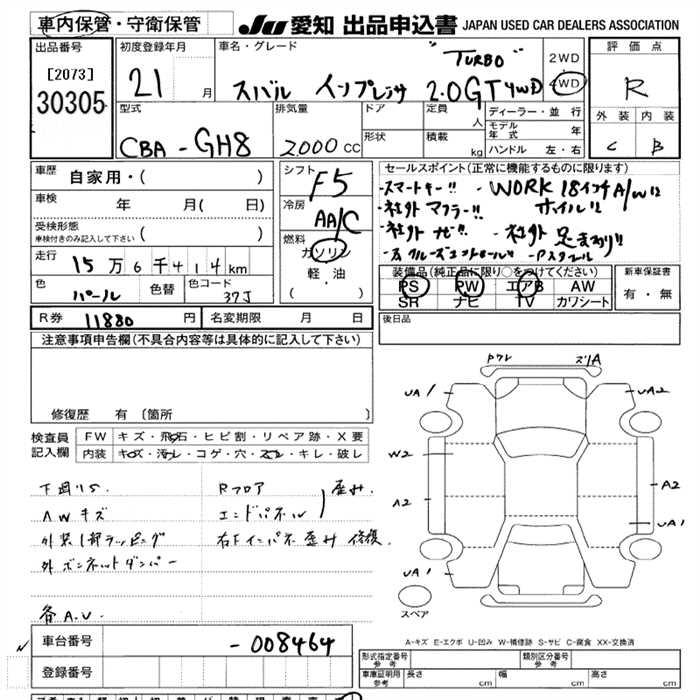 車内保管・守衛保管
JU 愛知 出品申込書 JAPAN USED CAR DEALERS ASSOCIATION
出品番号
[2073]
30305
初度登録年月
21 月
車名・グレード
"TURBO"
スバル インプレッサ 2.0GT 4WD
2WD
4WD
評価点
R
外装 内装
C B
型式
CBA-GH8
排気量
2000 CC
ドア
形状
定員
人
積載
kg
ディーラー・並行
モデル年式 年
ハンドル 左・右
車歴 自家用・( )
車検 年 月( 日)
受検形態
車検付きのみ記入して下さい ( )
走行 15万6千414km
色 パール 色替 色コード 37J
シフト
F5
冷房
AA/C
燃料
ガソリン
軽・油
( )
セールスポイント(正常に機能するものに限ります)
・スマートキー!! ・WORK 18インチA/W
・社外マフラー!! ホイル
・社外ナビ!! ・社外足まわり!!
装備品(純正品に限り○をつけてください)
PS PW エアB AW
SR ナビ TV カワシート
新車保証書
有・無
R券 11880 円 名変期限 月 日
後日品
注意事項申告欄(不具合内容等は具体的に記入して下さい)
修復歴 有 〔箇所 〕
検査員記入欄
FW キズ・飛石・ヒビ割・リペア跡・X要
内装 キズ・汚レ・コゲ・穴・スレ・キレ・破レ
下廻りS. Rフロア 歪み.
AWキズ エンドパネル
外装1部ラッピング 右下インパネ歪み 修復
外ボンネットダンパー
各A.U.
ワレ ズリA
UA1 UA2
W2
A2 A2
UA1
UA1
cm cm
cm cm
スペア
A-キズ E-エクボ U-凹み W-補修跡 S-サビ C-腐食 XX-交換済
車台番号 -008464
登録番号
形式指定番号 参考 類別区分番号 参考
車庫証明用 参考 長さ cm 幅 cm 高さ cm